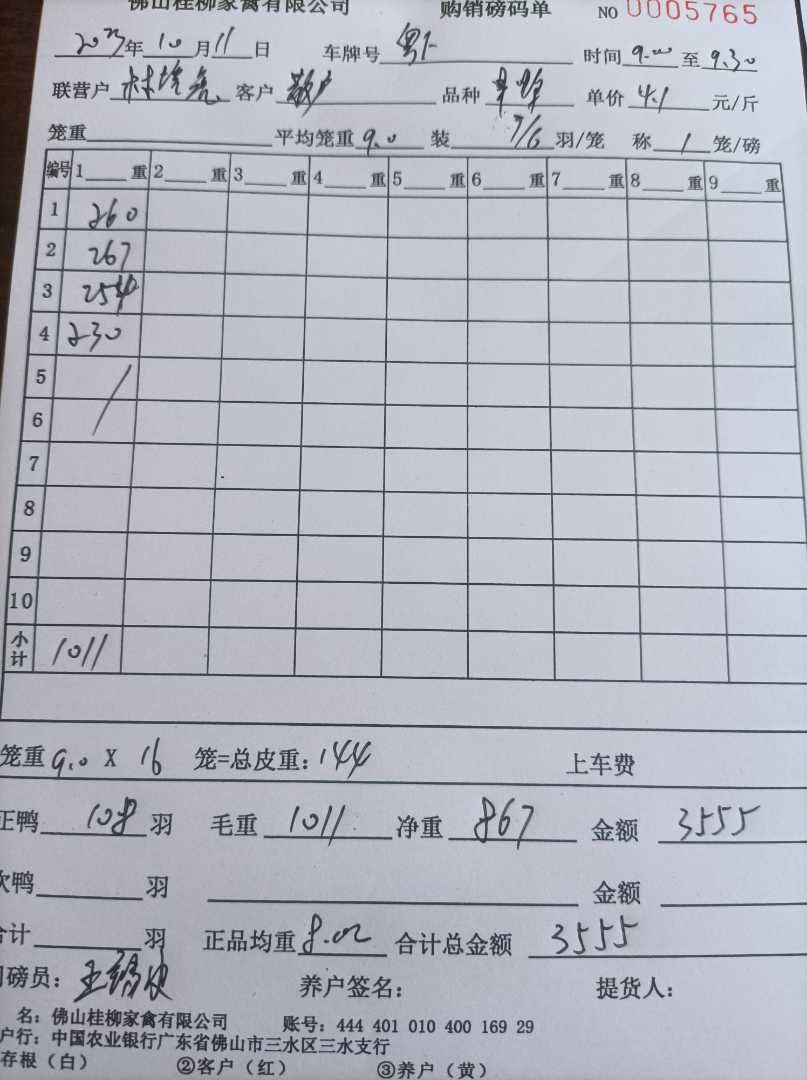 佛山桂柳家禽有限公司 购销磅码单 NO 0005765
2023年10月11日 车牌号 粤 时间 9.00 至 9.30
联营户 林 客户 散户 品种 单价 4.1 元/斤
笼重 平均笼重 9.0 装 7/6 羽/笼 称 1 笼/磅
编号 1 重 2 重 3 重 4 重 5 重 6 重 7 重 8 重 9 重
1 260
2 267
3 254
4 230
5
6
7
8
9
10
小计 1011
笼重 9.0 X 16 笼=总皮重：144 上车费
正鸭 108 羽 毛重 1011 净重 867 金额 3555
次鸭 羽 金额
合计 羽 正品均重 8.02 合计总金额 3555
磅员：王 养户签名： 提货人：
名：佛山桂柳家禽有限公司 账号：444 401 010 400 169 29
户行：中国农业银行广东省佛山市三水区三水支行
存根（白） ②客户（红） ③养户（黄）